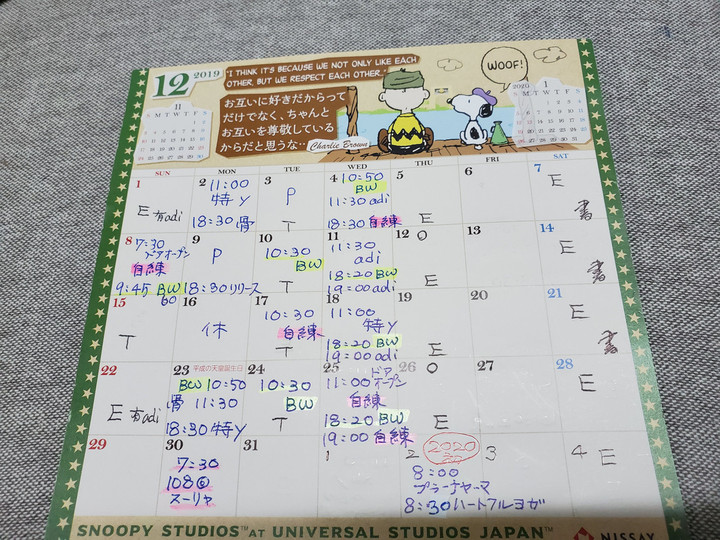 12 2019
"I THINK IT'S BECAUSE WE NOT ONLY LIKE EACH
OTHER, BUT WE RESPECT EACH OTHER."
お互いに好きだからって
だけでなく、ちゃんと
お互いを尊敬している
からだと思うな‥
Charlie Brown
WOOF!
11
S M T W T F S
2020 1
S M T W T F S
SUN MON TUE WED THU FRI SAT
1
E 有adi
2 11:00
特Y
18:30 骨
3
P
T
4 10:50
BW
11:30 adi
18:30 自練
5
E
6
7
E
書
8 7:30
ドアオープン
自練
9:45 BW
60
9
P
18:30 リリース
10
10:30
BW
T
11
11:30
adi
18:20 BW
19:00 adi
12 O
E
13
14
E
書
15
T
16
休
17
10:30
自練
T
18
11:00
特Y
18:20 BW
19:00 adi
19
E
20
21
E
書
22
E 有adi
23 平成の天皇誕生日
BW 10:50
骨 11:30
18:30 特Y
24
10:30
BW
T
25 ドア
11:00 オープン
自練
18:20 BW
19:00 自練
26 O
E
27
28
E
29
30
7:30
108回
スーリヤ
31
1
2 2020
8:00
プラーナヤーマ
8:30 ハートフルヨガ
3
4 E
SNOOPY STUDIOS™ AT UNIVERSAL STUDIOS JAPAN™
NISSAY